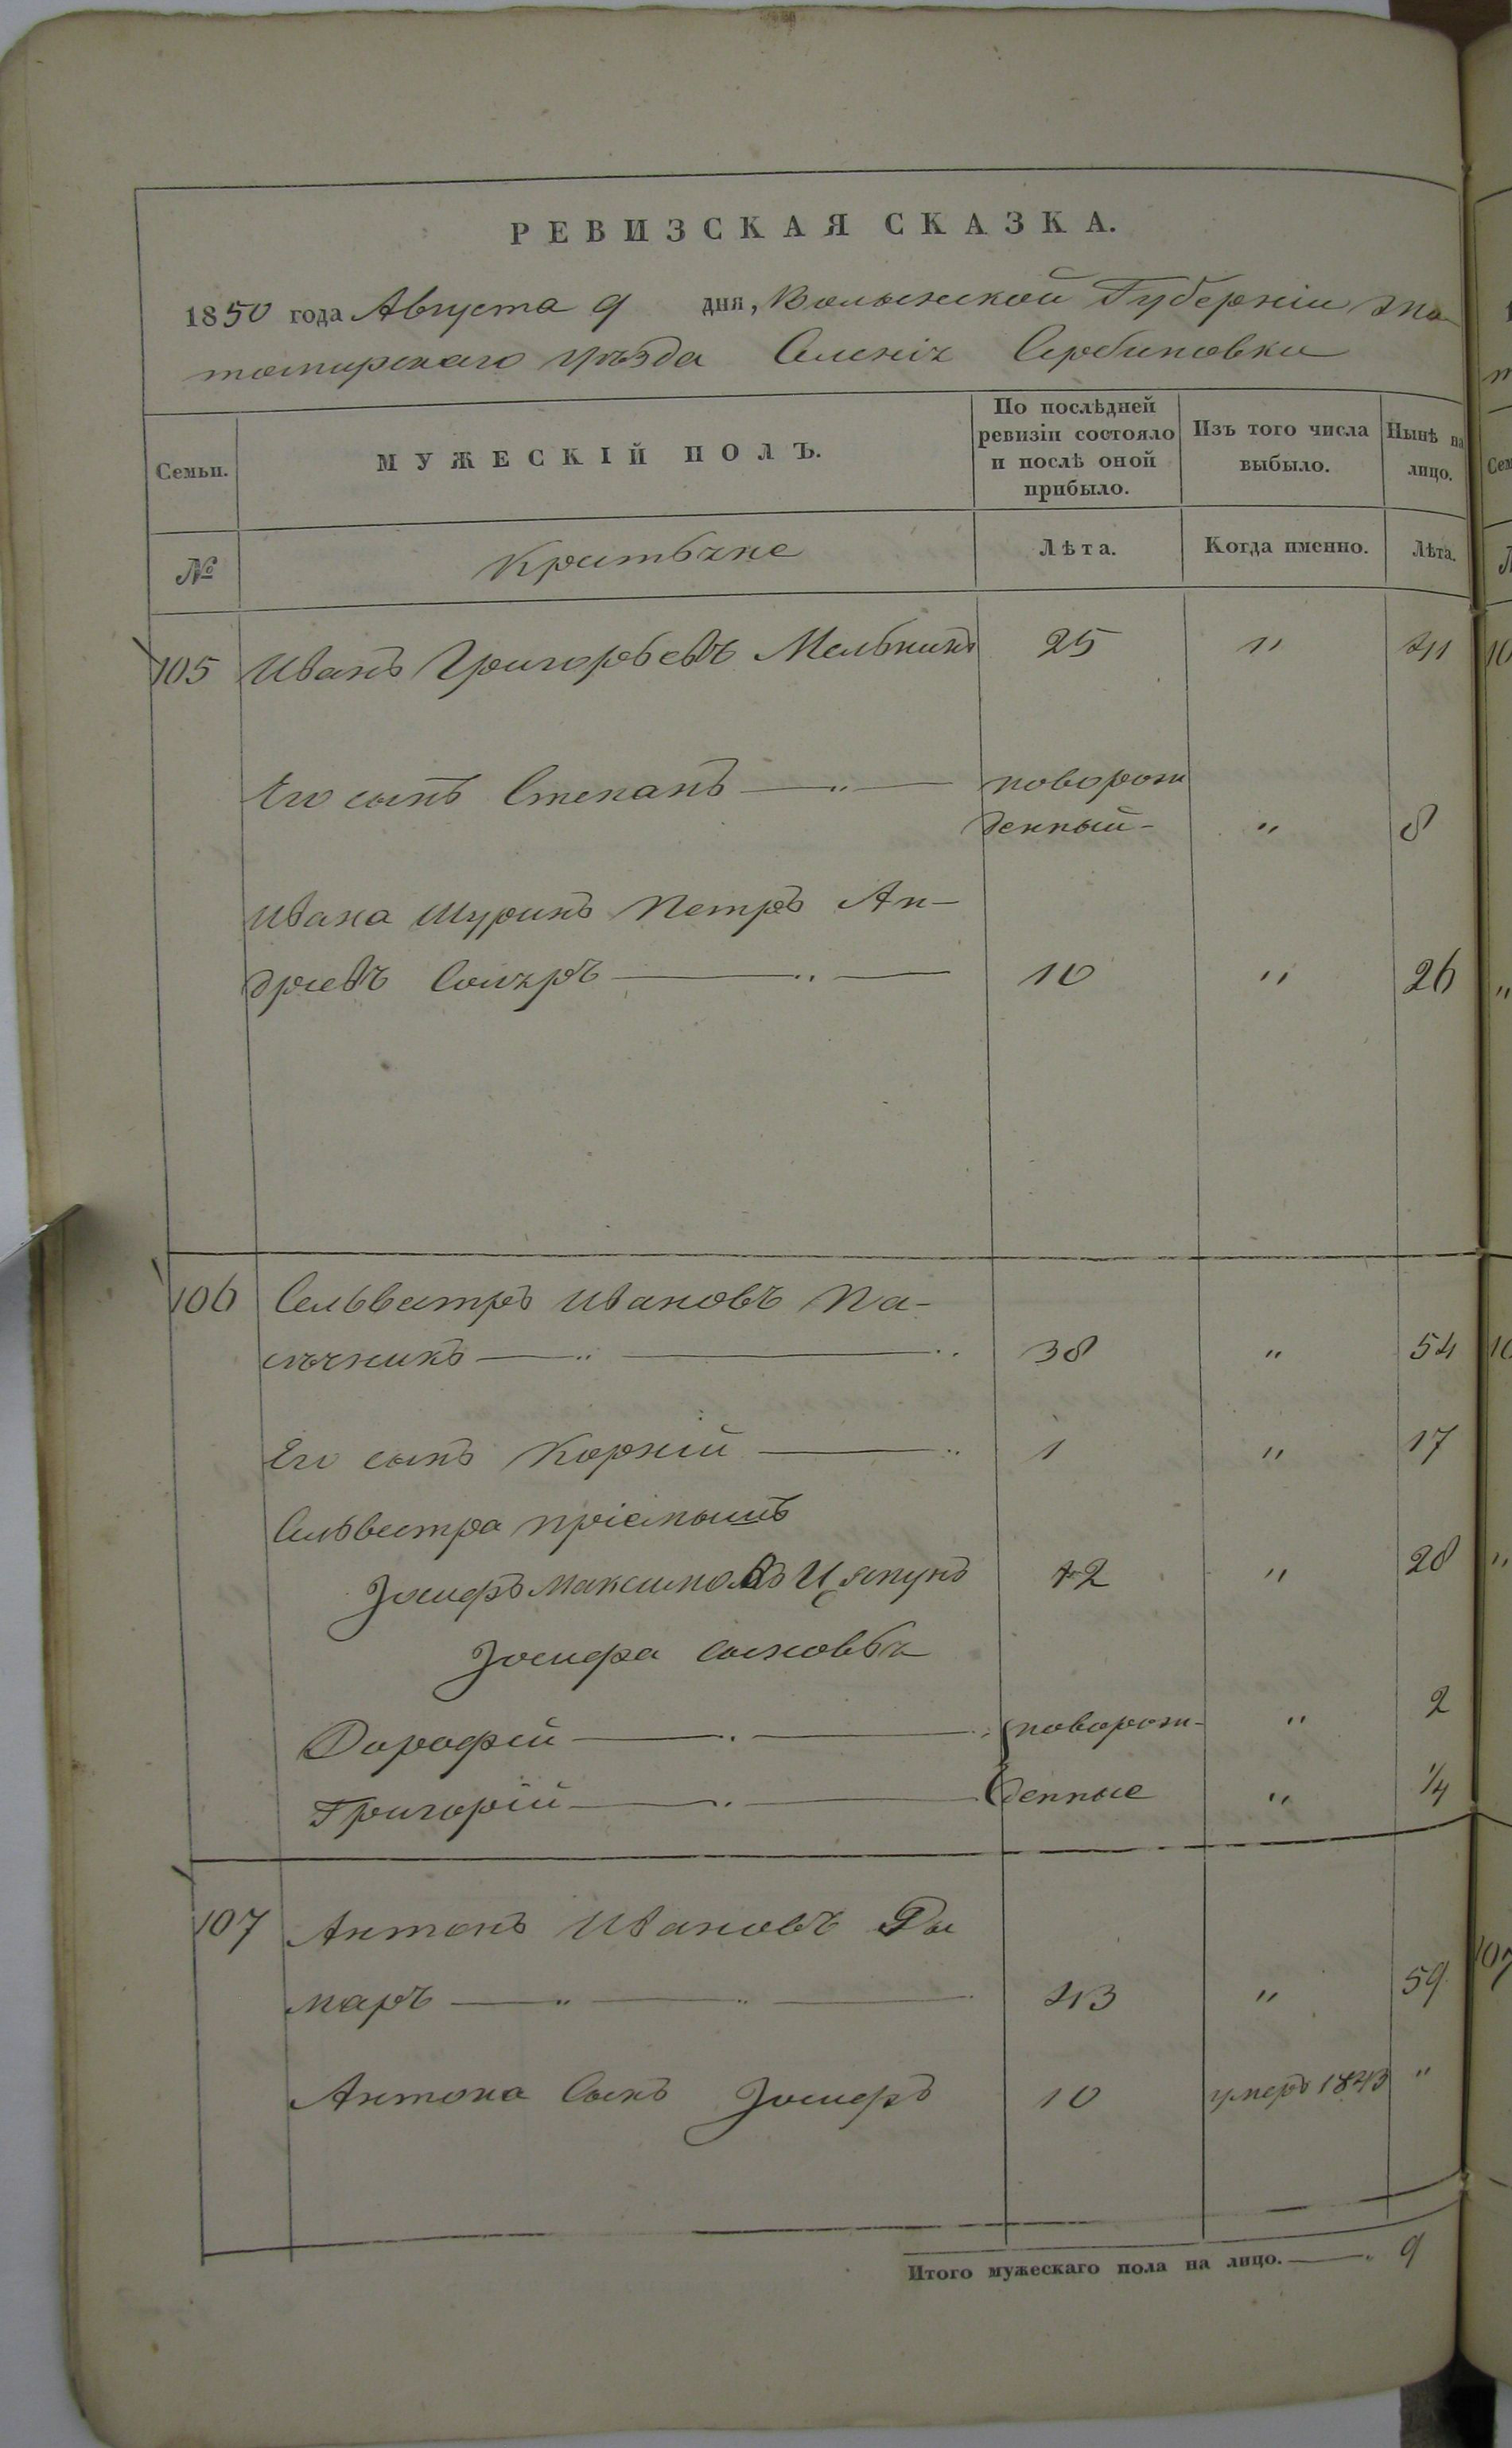 РЕВИЗСКАЯ СКАЗКА.
1850 года Августа 9 дня, Волынской Губерніи Жи-
томирскаго уѣзда Селенія Сербиновки
Семьи. МУЖЕСКІЙ ПОЛЪ. По послѣдней ревизіи состояло и послѣ оной прибыло. Изъ того числа выбыло. Нынѣ на лицо.
№ Лѣта. Когда именно. Лѣта.
105 Иванъ Григорьевъ Мельникъ 25 " 41
Его сынъ Степанъ — " — новорож
денный - " 8
Ивана Шуринъ Петръ Ан-
дреевъ — " — 10 " 26
106 Сельвестръ Ивановъ Па-
сѣчникъ — " — " 38 " 54
Его сынъ Корній — " 1 " 17
Сельвестра пріемышъ
Іосифъ Максимовъ Цяпунъ 12 " 28
Іосифа сыновья
Дорофей — . — новорож- " 2
Григорій — . — денные " 1/4
107 Антонъ Ивановъ Ры
маръ — " — " — 43 " 59
Антона Сынъ Іосифъ 10 умеръ 1843 "
Итого мужескаго пола на лицо. — " 9